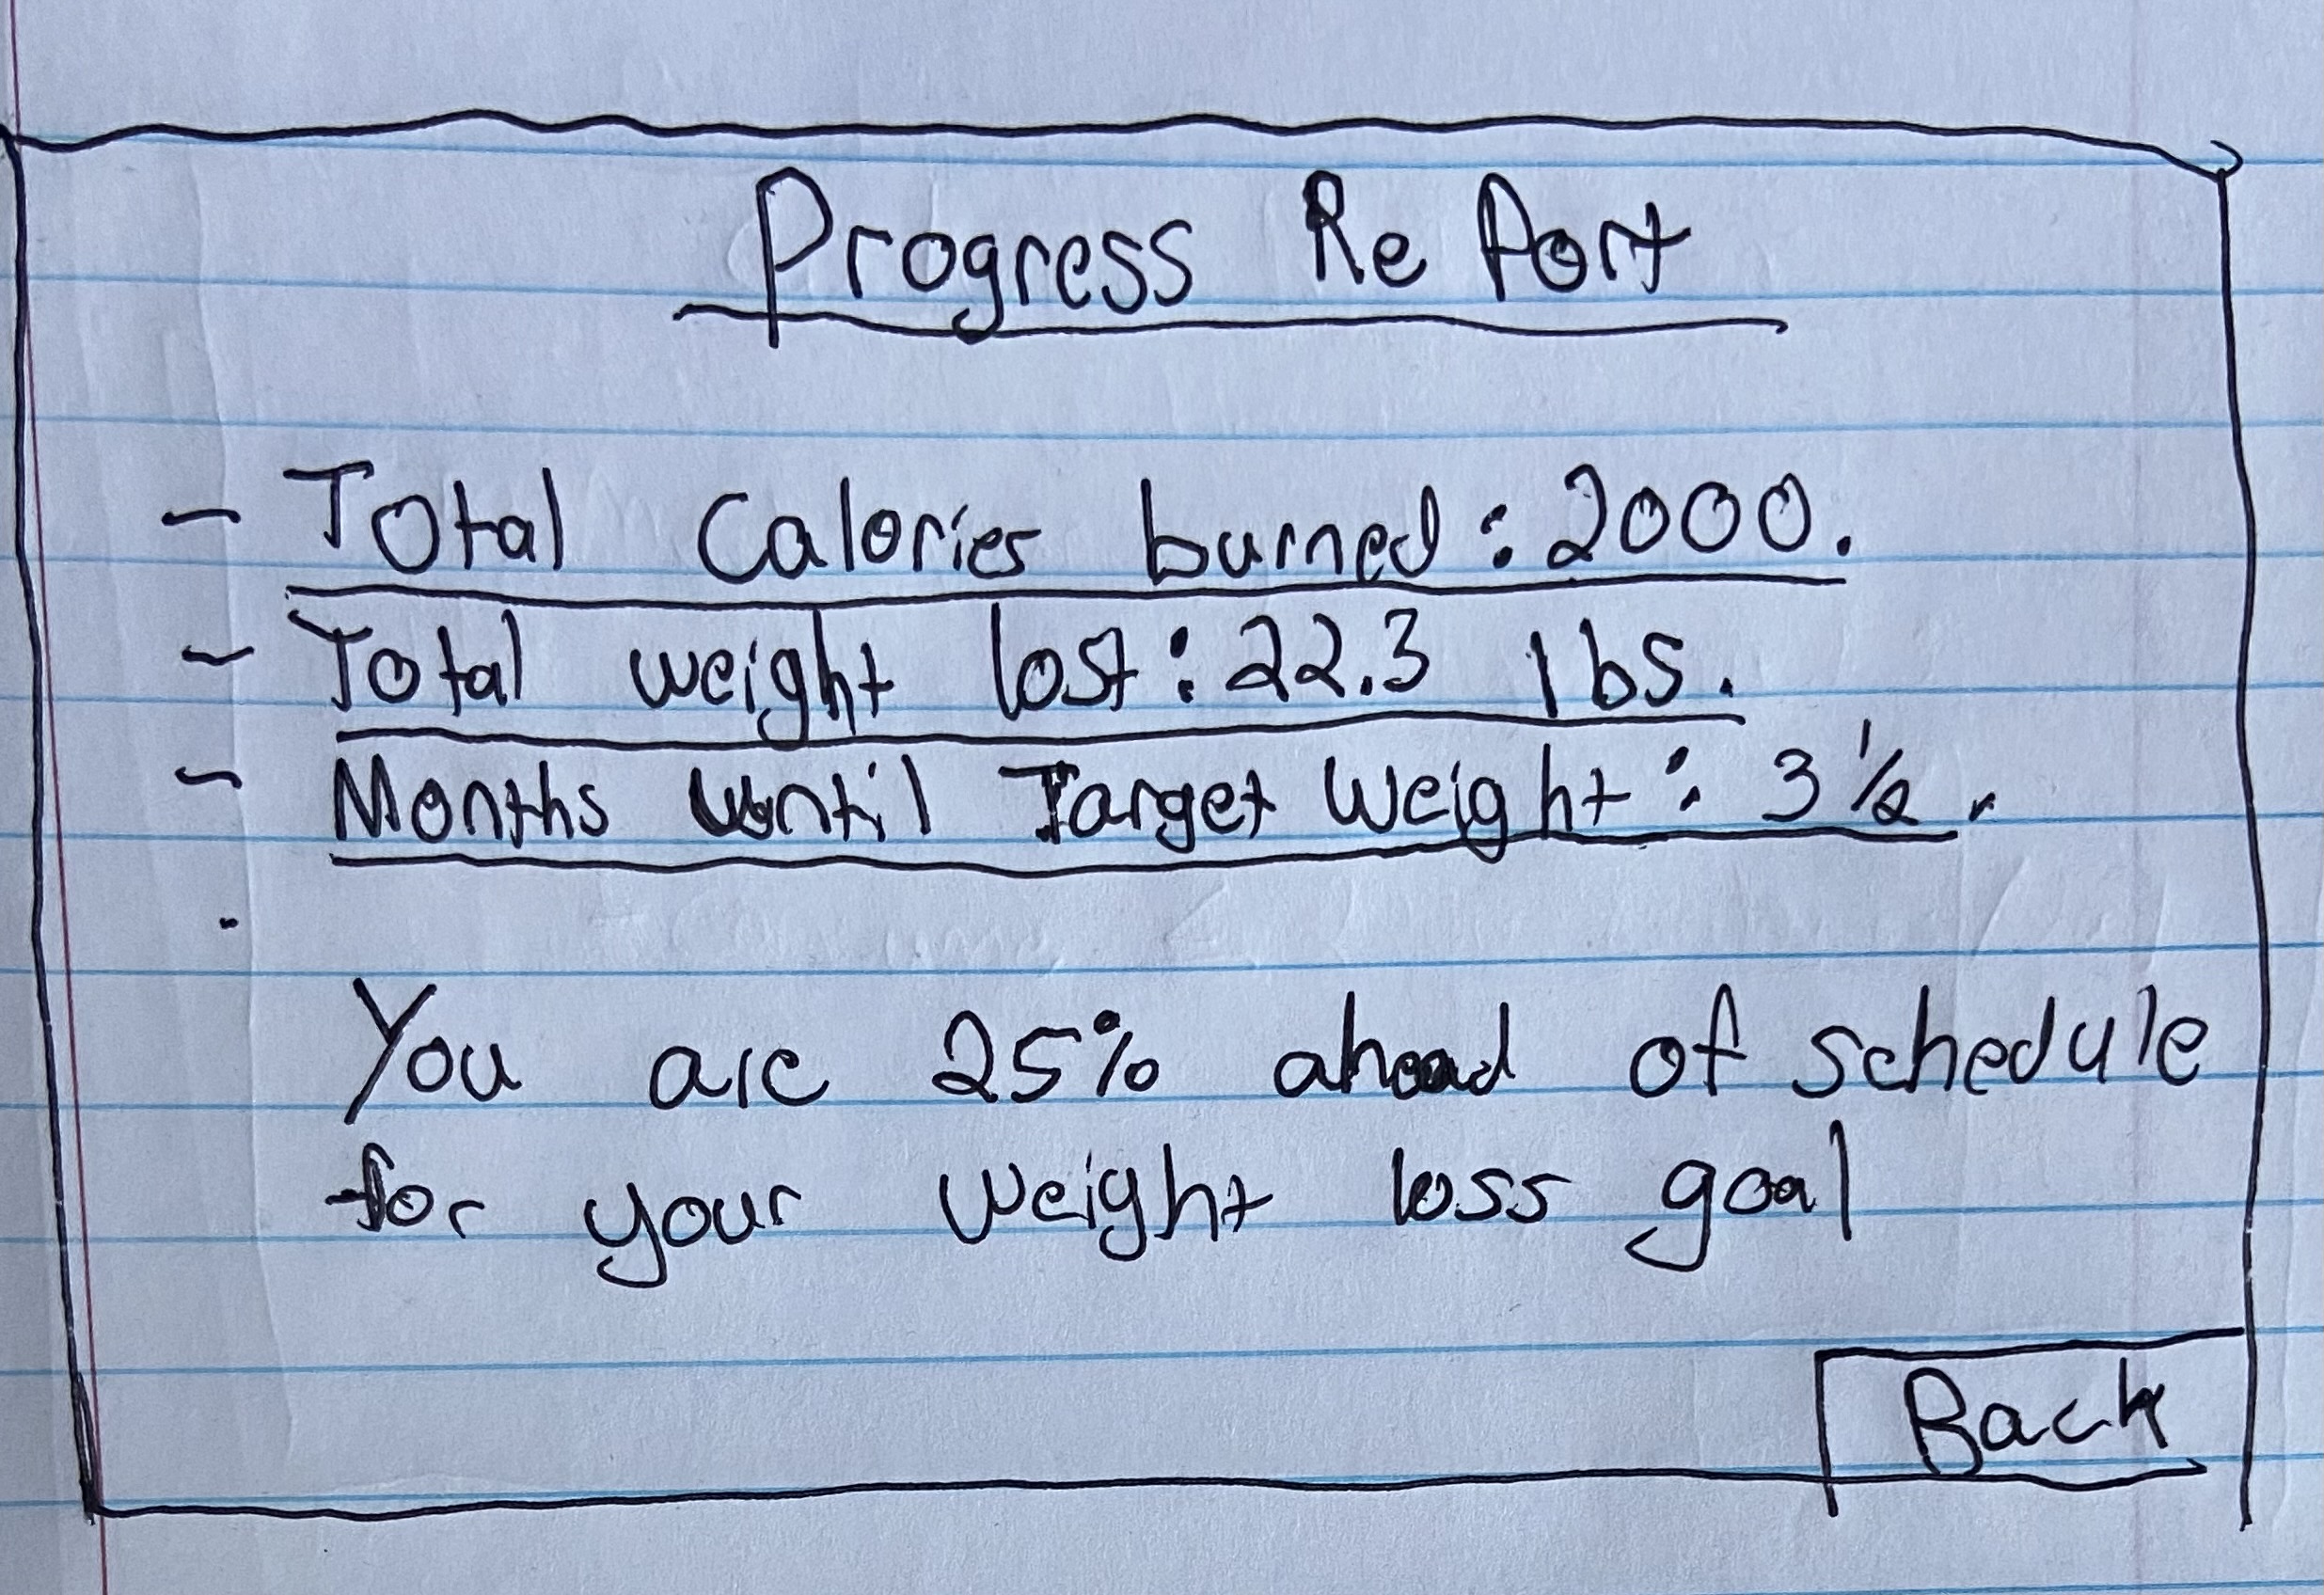 Progress Report
- Total Calories burned: 2000.
- Total weight lost: 22.3 lbs.
- Months until Target Weight: 3 1/2.
You are 25% ahead of schedule
for your weight loss goal
Back